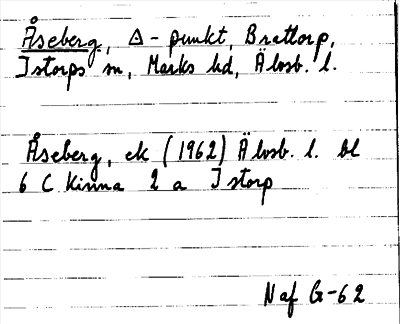 Åseberg, Δ - punkt, Brattorp,
Istorps sn, Marks hd, Älvsb. l.
Åseberg, ek (1962) Älvsb. l. bl
6 C Kinna 2 a Istorp
Naf G-62